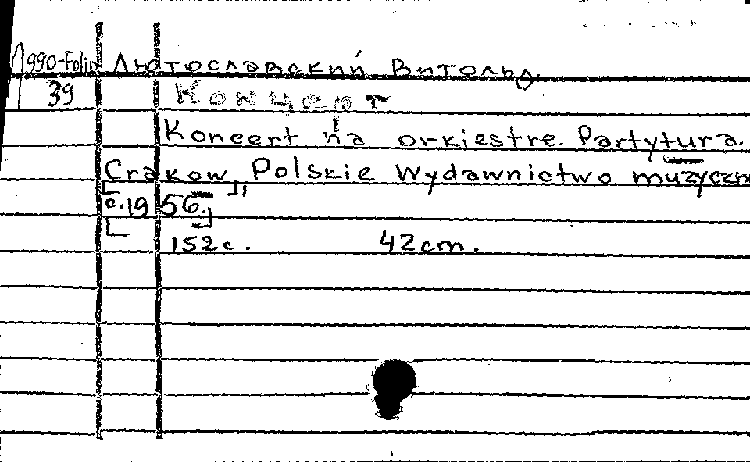 990-Folio Лютославский Витольд.
39 Концерт
Koncert na orkiestre. Partytura.
[Crakow], Polskie Wydawnictwo muzyczn
[c.1956.]
152c. 42cm.